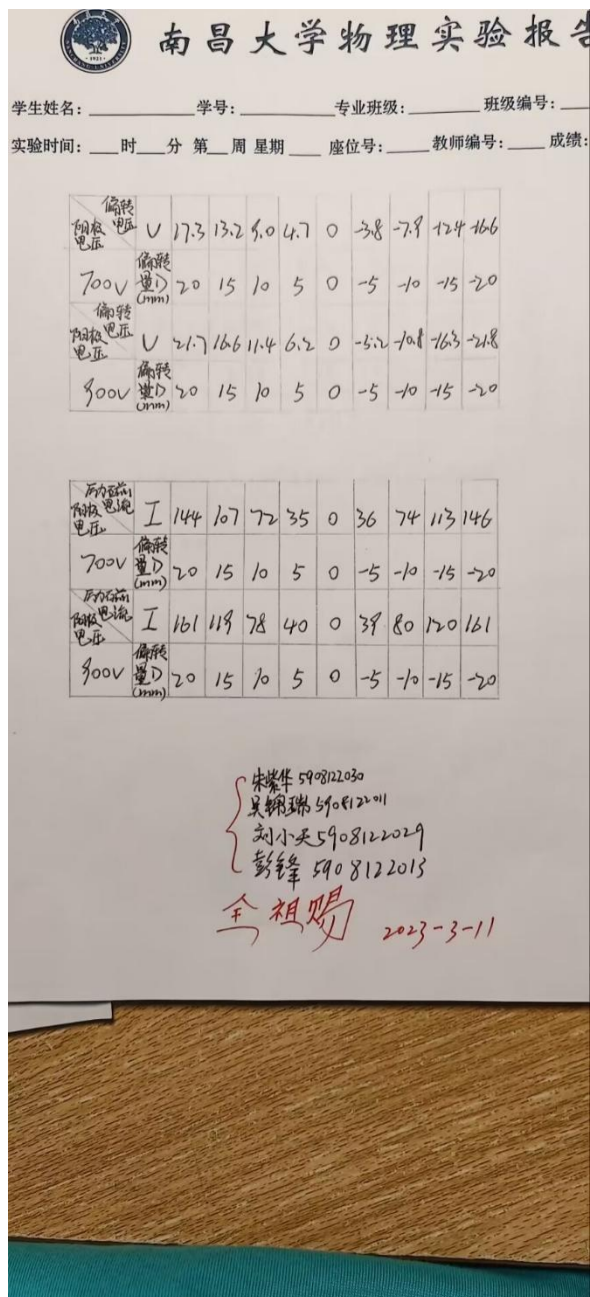 南昌大学物理实验报告
学生姓名: 学号: 专业班级: 班级编号:
实验时间: 时 分 第 周 星期 座位号: 教师编号: 成绩:
偏转电压 阳极电压 U 17.3 13.2 9.0 4.7 0 -3.8 -7.9 -12.4 -16.6
700V 偏转量D(mm) 20 15 10 5 0 -5 -10 -15 -20
偏转电压 阳极电压 U 21.7 16.6 11.4 6.2 0 -5.2 -10.8 -16.3 -21.8
900V 偏转量D(mm) 20 15 10 5 0 -5 -10 -15 -20
励磁电流 阳极电压 I 144 107 72 35 0 36 74 113 146
700V 偏转量D(mm) 20 15 10 5 0 -5 -10 -15 -20
励磁电流 阳极电压 I 161 119 78 40 0 39 80 120 161
900V 偏转量D(mm) 20 15 10 5 0 -5 -10 -15 -20
朱紫华 5908122030
5908122011
刘小天 5908122029
彭锋 5908122013
全祖赐 2023-3-11